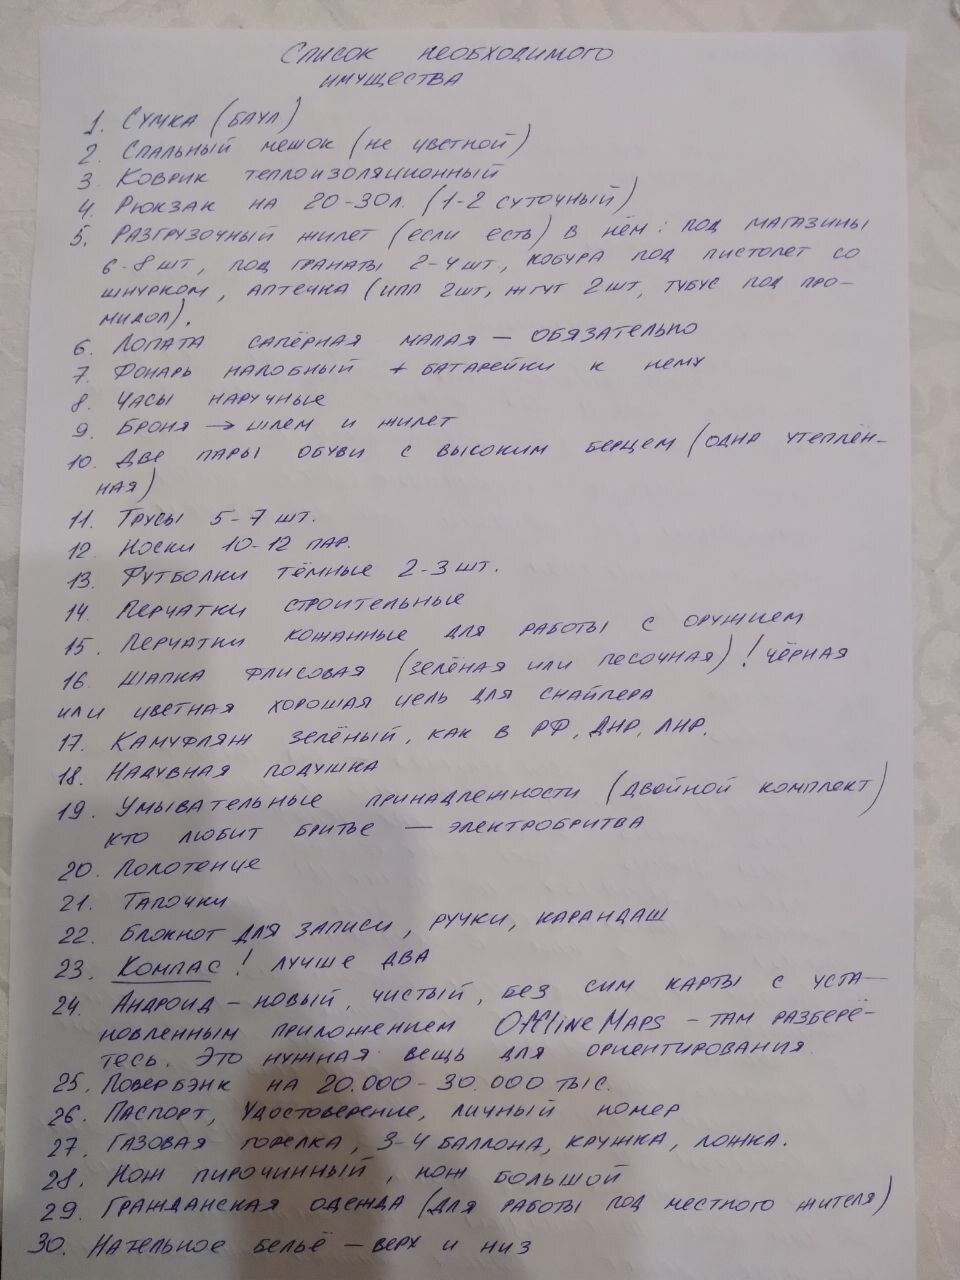 Список необходимого
имущества
1. Сумка (баул)
2. Спальный мешок (не цветной)
3. Коврик теплоизоляционный
4. Рюкзак на 20-30л. (1-2 суточный)
5. Разгрузочный жилет (если есть) в нём: под магазины
6-8 шт, под гранаты 2-4 шт., кобура под пистолет со
шнурком, аптечка (ипп 2шт, жгут 2 шт, тубус под про-
мидол).
6. Лопата сапёрная малая — обязательно
7. Фонарь налобный + батарейки к нему
8. Часы наручные
9. Броня → шлем и жилет
10. Две пары обуви с высоким берцем (одна утеплён-
ная)
11. Трусы 5-7 шт.
12. Носки 10-12 пар.
13. Футболки тёмные 2-3 шт.
14. Перчатки строительные
15. Перчатки кожанные для работы с оружием
16. Шапка флисовая (зелёная или песочная)! чёрная
или цветная хорошая цель для снайпера
17. Камуфляж зелёный, как в РФ, ДНР, ЛНР.
18. Надувная подушка
19. Умывательные принадлежности (двойной комплект)
кто любит бритье — электробритва
20. Полотенце
21. Тапочки
22. Блокнот для записи, ручки, карандаш
23. Компас! лучше два
24. Андроид – новый, чистый, без сим карты с уста-
новленным приложением Offline Maps – там разберё-
тесь. Это нужная вещь для ориентирования.
25. Повербэнк на 20.000 – 30.000 тыс.
26. Паспорт, Удостоверение, личный номер
27. Газовая горелка, 3-4 баллона, кружка, ложка.
28. Нож пирочинный, нож большой
29. Гражданская одежда (для работы под местного жителя)
30. Нательное бельё – верх и низ